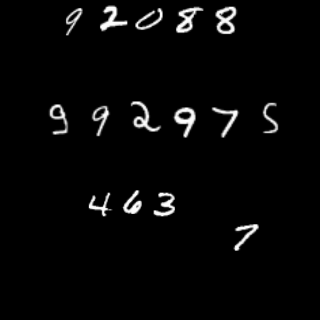 92088
992975
463
7